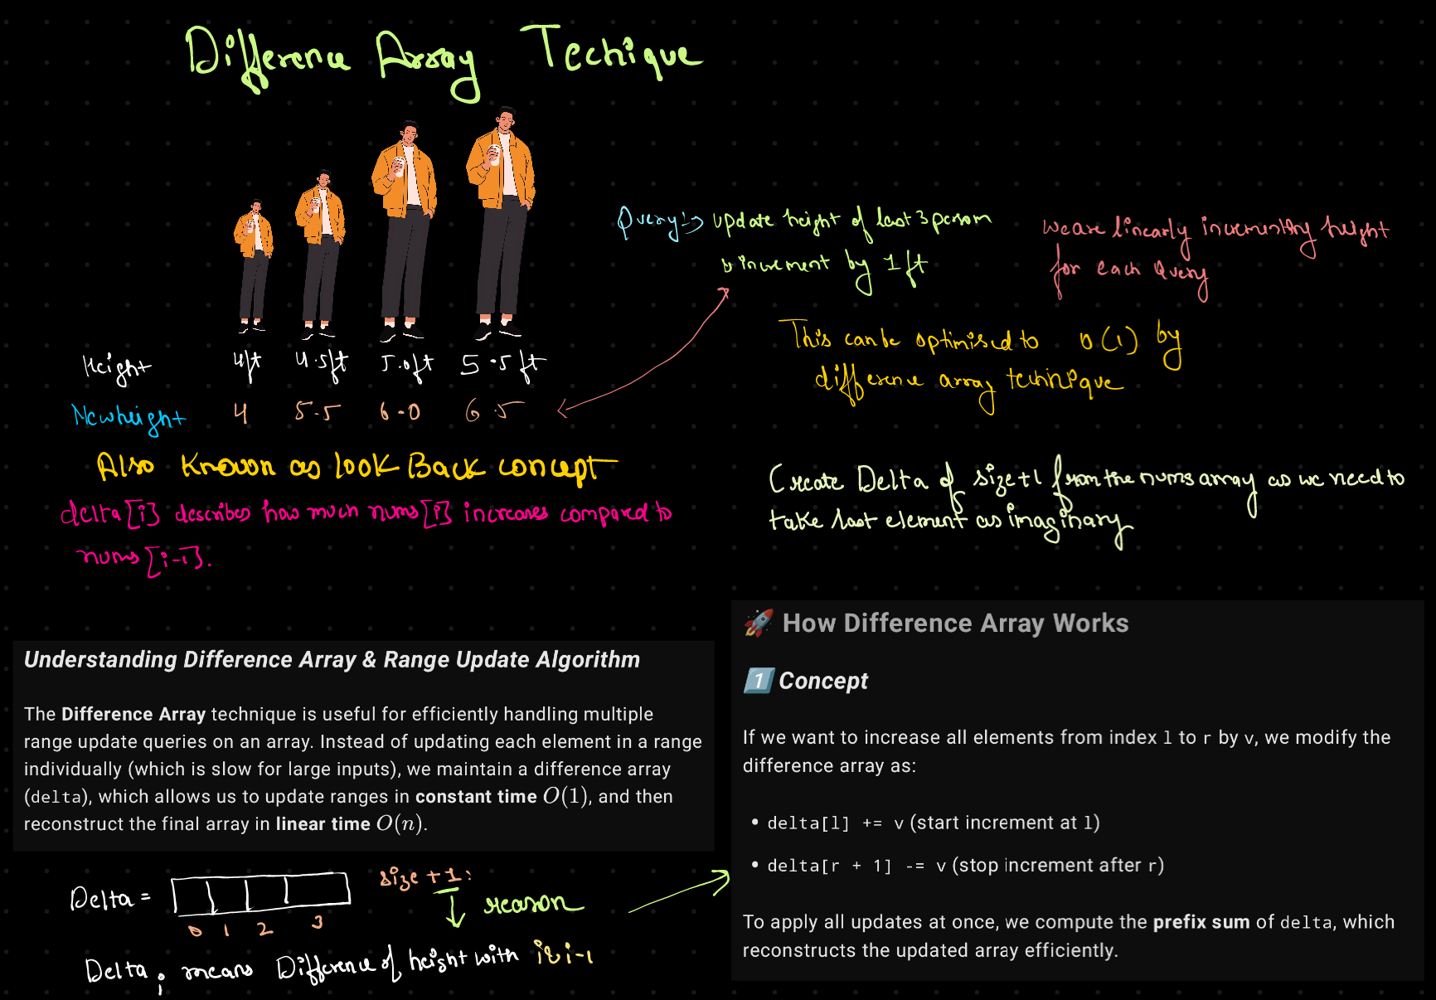 Difference Array Techique
Query:→ update height of last 3 person
↳ increment by 1ft
we are linearly incrementing height
for each Query
This can be optimised to O(1) by
difference array technique
Height 4ft 4.5ft 5.0ft 5.5ft
Newheight 4 5.5 6.0 6.5
Also Known as look Back concept
delta[i] describes how much nums[i] increases compared to
nums[i-1].
Create Delta of size+1 from the nums array as we need to
take last element as imaginary
Understanding Difference Array & Range Update Algorithm
The Difference Array technique is useful for efficiently handling multiple
range update queries on an array. Instead of updating each element in a range
individually (which is slow for large inputs), we maintain a difference array
(delta), which allows us to update ranges in constant time O(1), and then
reconstruct the final array in linear time O(n).
Delta =
0 1 2 3
size +1:
↓ reason
Delta i means Difference of height with i & i-1
🚀 How Difference Array Works
1️⃣ Concept
If we want to increase all elements from index l to r by v, we modify the
difference array as:
• delta[l] += v (start increment at l)
• delta[r + 1] -= v (stop increment after r)
To apply all updates at once, we compute the prefix sum of delta, which
reconstructs the updated array efficiently.